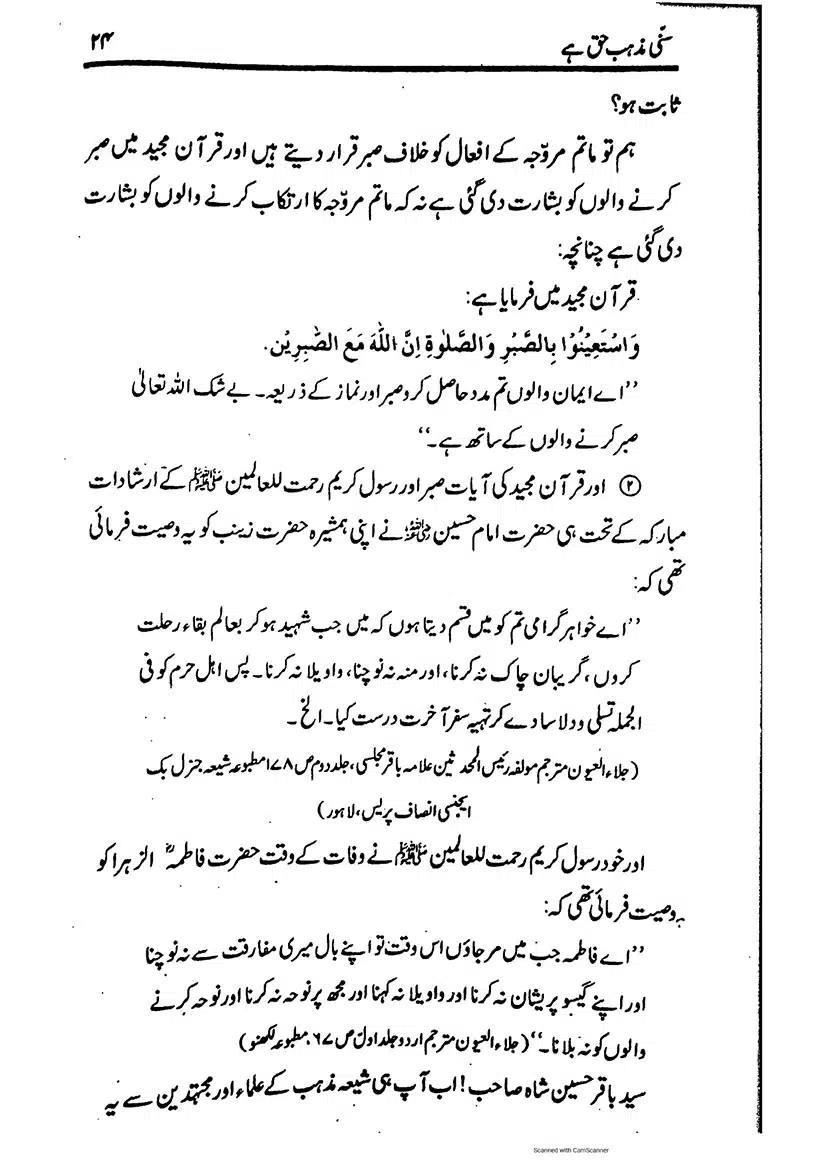 سنّی مذہب حق ہے ۲۴
ثابت ہو؟
ہم تو ماتم مروّجہ کے افعال کو خلاف صبر قرار دیتے ہیں اور قرآن مجید میں صبر
کرنے والوں کو بشارت دی گئی ہے نہ کہ ماتم مروّجہ کا ارتکاب کرنے والوں کو بشارت
دی گئی ہے چنانچہ:
قرآن مجید میں فرمایا ہے:
وَاسْتَعِيْنُوْا بِالصَّبْرِ وَالصَّلٰوةِ اِنَّ اللّٰهَ مَعَ الصّٰبِرِيْن.
’’اے ایمان والوں تم مدد حاصل کرو صبر اور نماز کے ذریعہ۔ بے شک اللہ تعالیٰ
صبر کرنے والوں کے ساتھ ہے۔‘‘
② اور قرآن مجید کی آیات صبر اور رسول کریم رحمت للعالمین ﷺ کے ارشادات
مبارکہ کے تحت ہی حضرت امام حسین رضی اللہ عنہ نے اپنی ہمشیرہ حضرت زینب کو یہ وصیت فرمائی
تھی کہ:
’’اے خواہر گرامی تم کو میں قسم دیتا ہوں کہ میں جب شہید ہو کر بعالم بقاء رحلت
کروں، گریبان چاک نہ کرنا، اور منہ نہ نوچنا، واویلا نہ کرنا۔ پس اہل حرم کو فی
الجملہ تسلی و دلاسا دے کر تہیہ سفر آخرت درست کیا۔ الخ۔
(جلاء العیون مترجم مولفہ رئیس المحدثین علامہ باقر مجلسی، جلد دوم ص ۱۷۸ مطبوعہ شیعہ جنرل بک
ایجنسی انصاف پریس، لاہور)
اور خود رسول کریم رحمت للعالمین ﷺ نے وفات کے وقت حضرت فاطمہؓ الزہرا کو
یہ وصیت فرمائی تھی کہ:
’’اے فاطمہ جب میں مر جاؤں اس وقت تو اپنے بال میری مفارقت سے نہ نوچنا
اور اپنے گیسو پریشان نہ کرنا اور واویلا نہ کہنا اور مجھ پر نوحہ نہ کرنا اور نوحہ کرنے
والوں کو نہ بلانا۔‘‘ (جلاء العیون مترجم اردو جلد اول ص ۶۷، مطبوعہ لکھنو)
سید باقر حسین شاہ صاحب! اب آپ ہی شیعہ مذہب کے علماء اور مجتہدین سے یہ
Scanned with CamScanner